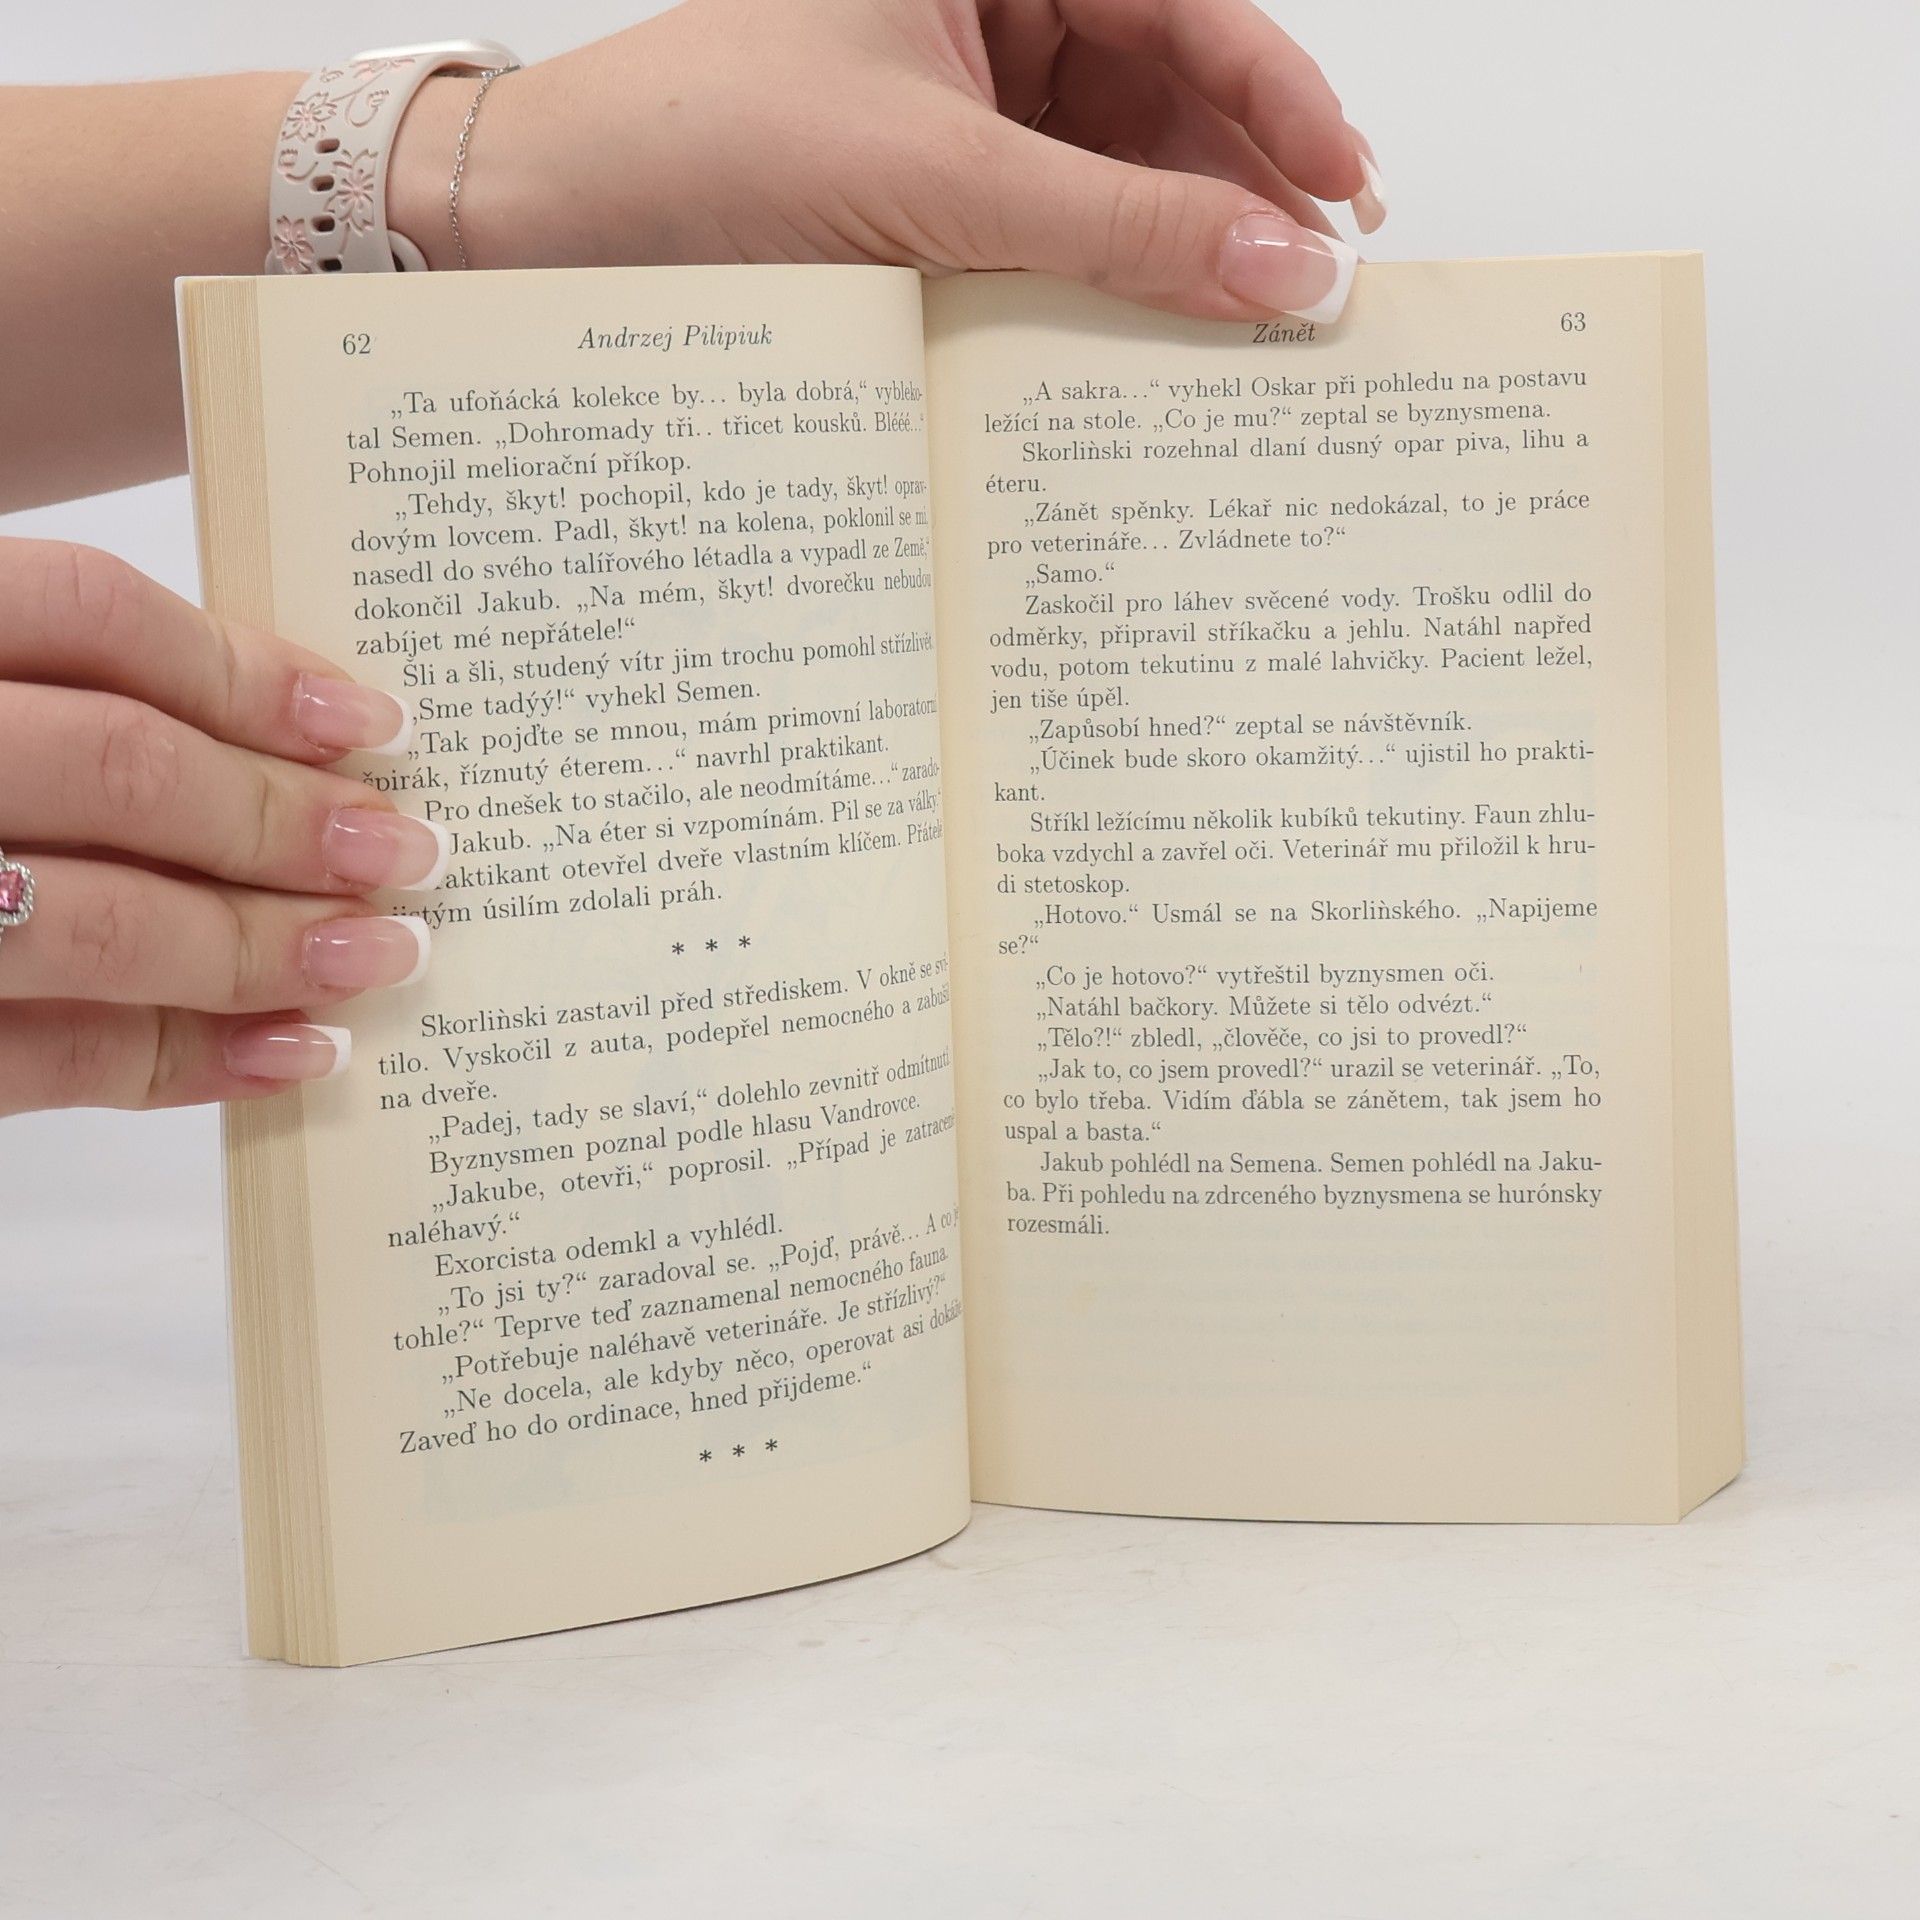 62
Andrzej Pilipiuk
„Ta ufoňácká kolekce by... byla dobrá,“ vybleko-
tal Semen. „Dohromady tři.. třicet kousků. Blééé...“
Pohnojil meliorační příkop.
„Tehdy, škyt! pochopil, kdo je tady, škyt! oprav-
dovým lovcem. Padl, škyt! na kolena, poklonil se mi,
nasedl do svého talířového létadla a vypadl ze Země,“
dokončil Jakub. „Na mém, škyt! dvorečku nebudou
zabíjet mé nepřátele!“
Šli a šli, studený vítr jim trochu pomohl střízlivět.
„Sme tadýý!“ vyhekl Semen.
„Tak pojďte se mnou, mám primovní laboratorní
špirák, říznutý éterem...“ navrhl praktikant.
Pro dnešek to stačilo, ale neodmítáme...“ zarado-
Jakub. „Na éter si vzpomínám. Pil se za války.“
raktikant otevřel dveře vlastním klíčem. Přátelé
jistým úsilím zdolali práh.
* * *
Skorliński zastavil před střediskem. V okně se sví-
tilo. Vyskočil z auta, podepřel nemocného a zabušil
na dveře.
„Padej, tady se slaví,“ dolehlo zevnitř odmítnutí.
Byznysmen poznal podle hlasu Vandrovce.
„Jakube, otevři,“ poprosil. „Případ je zatraceně
naléhavý.“
Exorcista odemkl a vyhlédl.
„To jsi ty?“ zaradoval se. „Pojď, právě... A co je
tohle?“ Teprve teď zaznamenal nemocného fauna.
„Potřebuje naléhavě veterináře. Je střízlivý?“
„Ne docela, ale kdyby něco, operovat asi dokáže.
Zaveď ho do ordinace, hned přijdeme.“
* * *
Zánět
63
„A sakra...“ vyhekl Oskar při pohledu na postavu
ležící na stole. „Co je mu?“ zeptal se byznysmena.
Skorliński rozehnal dlaní dusný opar piva, lihu a
éteru.
„Zánět spěnky. Lékař nic nedokázal, to je práce
pro veterináře... Zvládnete to?“
„Samo.“
Zaskočil pro láhev svěcené vody. Trošku odlil do
odměrky, připravil stříkačku a jehlu. Natáhl napřed
vodu, potom tekutinu z malé lahvičky. Pacient ležel,
jen tiše úpěl.
„Zapůsobí hned?“ zeptal se návštěvník.
„Účinek bude skoro okamžitý...“ ujistil ho prakti-
kant.
Stříkl ležícímu několik kubíků tekutiny. Faun zhlu-
boka vzdychl a zavřel oči. Veterinář mu přiložil k hru-
di stetoskop.
„Hotovo.“ Usmál se na Skorlińského. „Napijeme
se?“
„Co je hotovo?“ vytřeštil byznysmen oči.
„Natáhl bačkory. Můžete si tělo odvézt.“
„Tělo?!“ zbledl, „člověče, co jsi to provedl?“
„Jak to, co jsem provedl?“ urazil se veterinář. „To,
co bylo třeba. Vidím ďábla se zánětem, tak jsem ho
uspal a basta.“
Jakub pohlédl na Semena. Semen pohlédl na Jaku-
ba. Při pohledu na zdrceného byznysmena se hurónsky
rozesmáli.